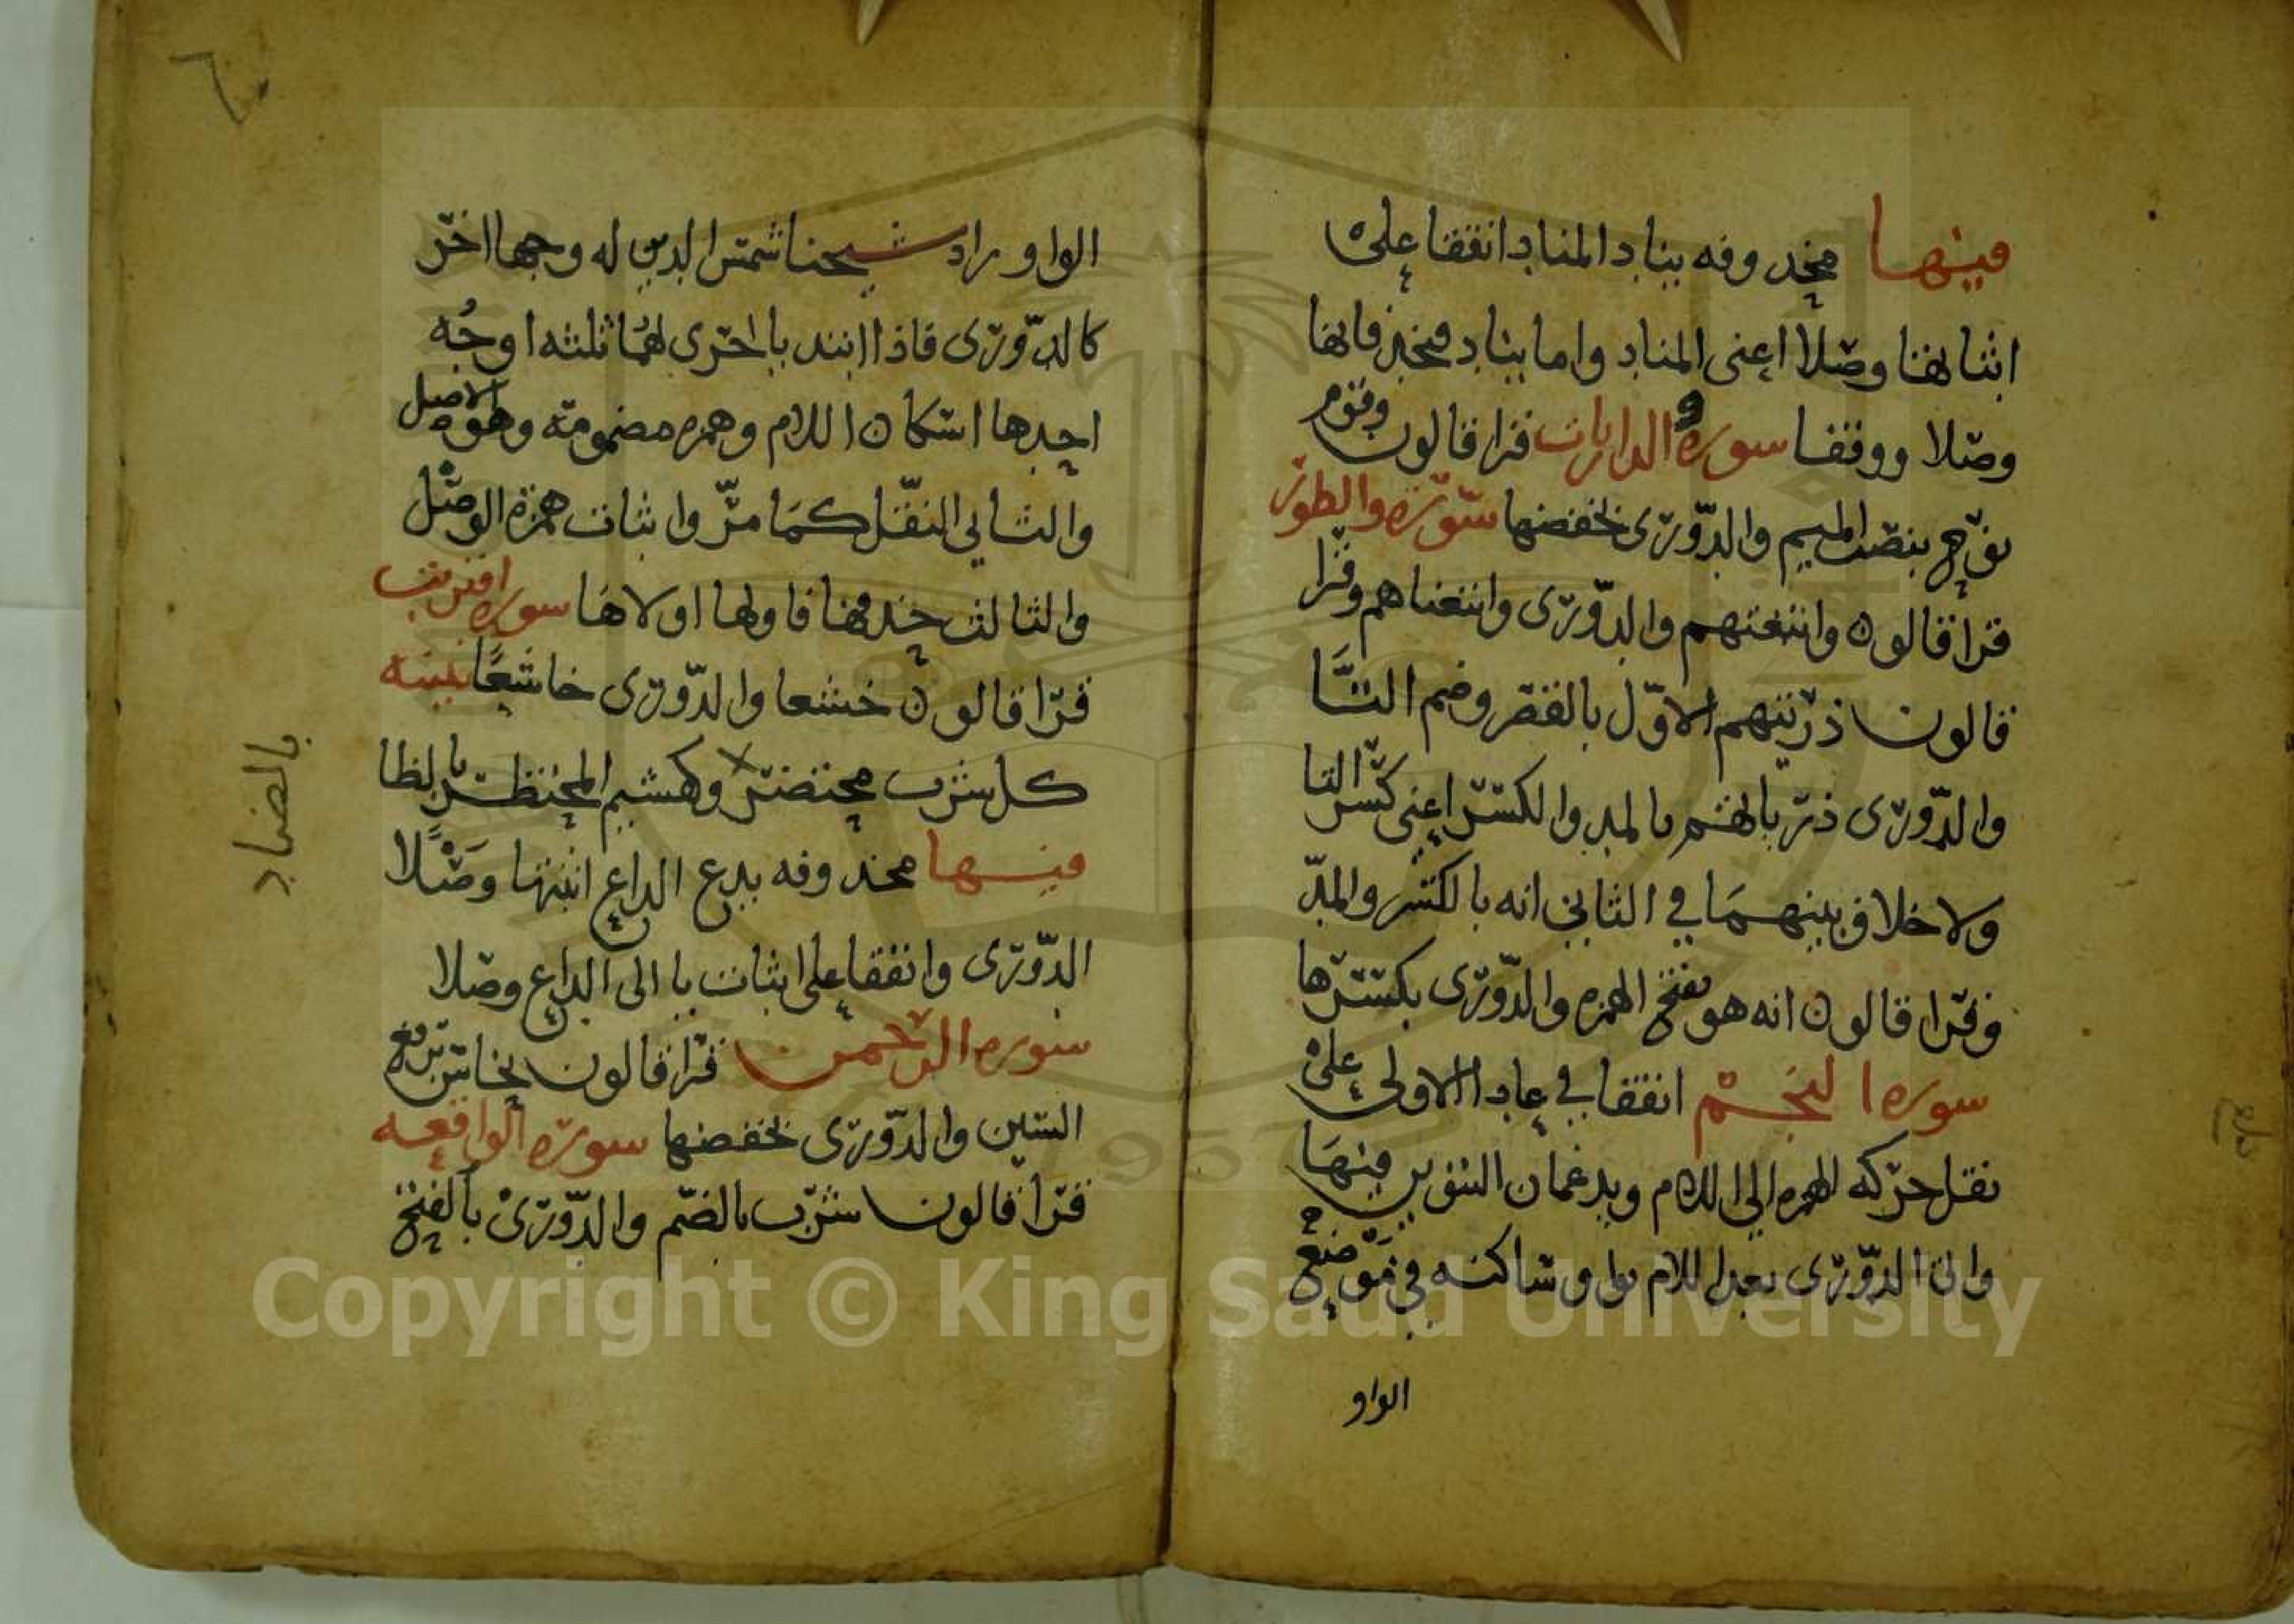 فيها محذوفه يناد المناد اتفقا على
اثباتها وصلا اعنى المناد واما يناد فمحذوفانها
وصلا ووقفا سورة والذاريات قرا قالون وقوم
نوح بنصب الميم والدورى بخفضها سورة والطور
قرا قالون واتبعتهم والدورى واتبعناهم وقرا
قالون ذريتهم الاول بالقصر وضم التا
والدورى ذرياتهم بالمد والكسر اعنى كسر التا
ولا خلاف بينهما في الثاني انه بالكسر والمد
وقرا قالون انه هو بفتح الهمزه والدورى بكسرها
سورة النجم اتفقا في عادا الاولى على
نقل حركه الهمزه الى اللام ويدغمان التنوين فيها
واتى الدورى بعد اللام بواو ساكنه في موضع
الواو
٦٠
الواو وزاد شيخنا شمس الدين له وجها اخر
كالدورى فاذا ابتديا باخرى لهما ثلثه اوجه
احدها اسكان اللام وهمزه مضمومه وهو الاصل
والثاني النقل كما مر واثبات همزة الوصل
والثالث حذفها فاولها اولاها سورة اقتربت
قرا قالون خشعا والدورى خاشعا تنبيه
كل شرب محتضر وكهشيم المحتظر بالظا
بالضاد
فيها محذوفه يدع الداع اثبتها وصلا
الدورى واتفقا على اثبات يا الى الداع وصلا
سورة الرحمن قرا قالون نحاس برفع
السين والدورى بخفضها سورة الواقعه
قرا قالون شرب بالضم والدورى بالفتح
Copyright © King Saud University
1957